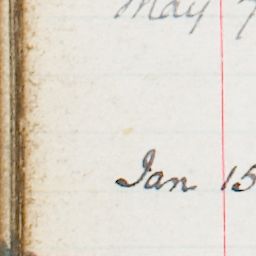 May 7
Jan 15